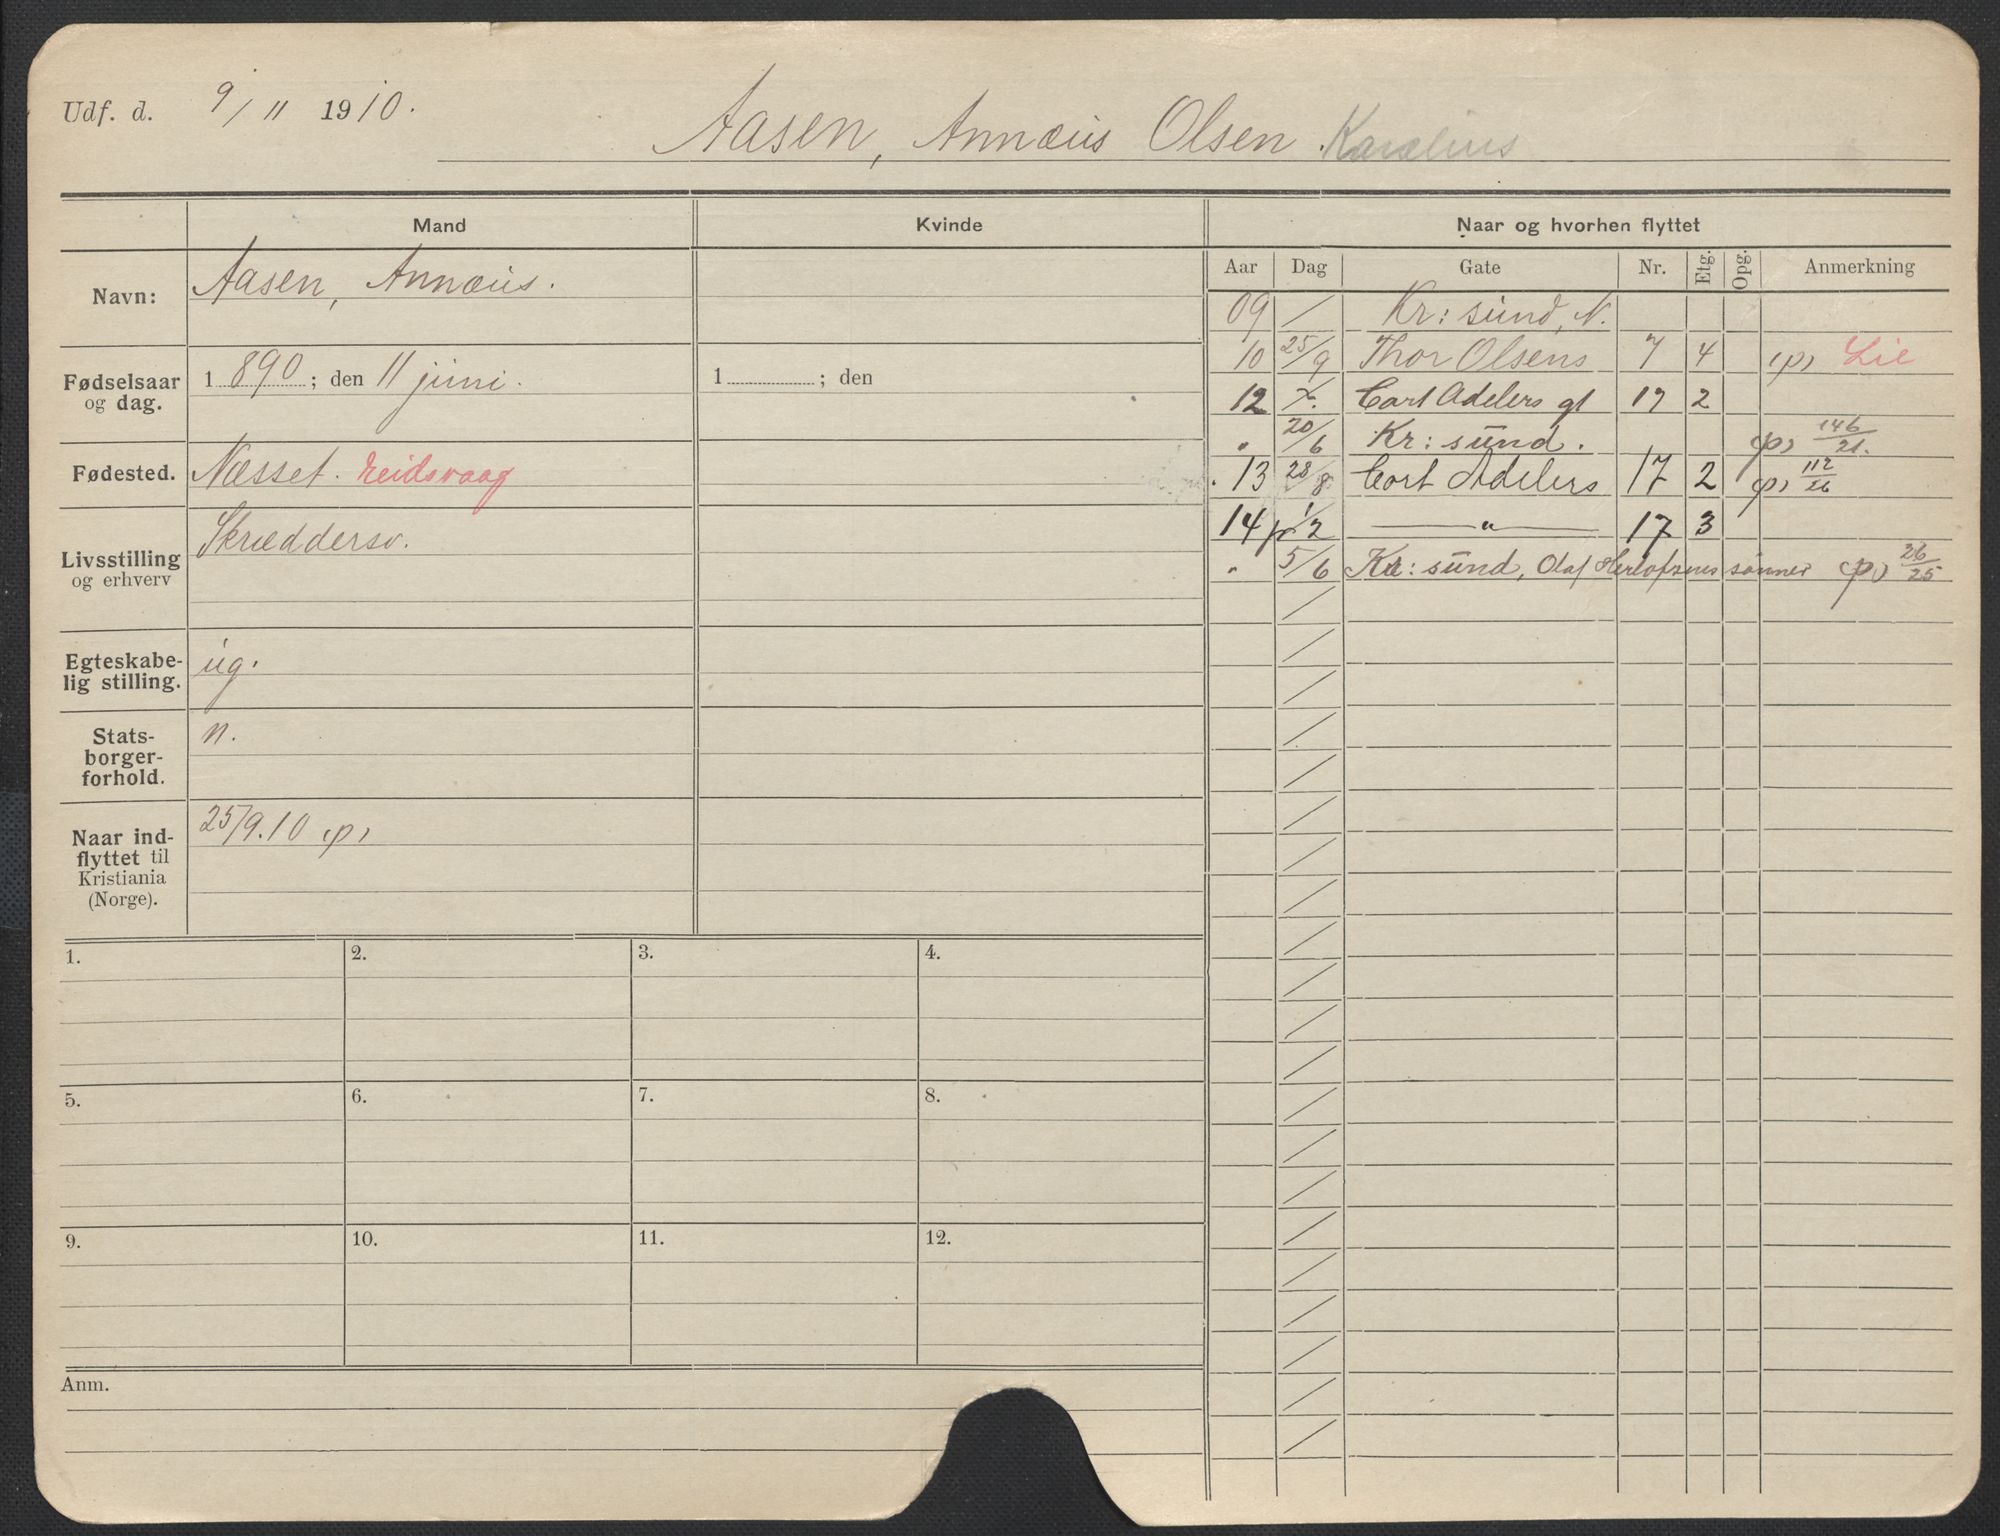 Udf. d. 9/11 1910.
Aasen, Annæus Olsen. Karelius
Mand
Kvinde
Naar og hvorhen flyttet
Navn: Aasen, Annæus.
Fødselsaar og dag. 1 890 ; den 11 juni.
1 ; den
Fødested. Næsset. reidsvaag
Livsstilling og erhverv Skræddersv.
Egteskabe-
lig stilling. ug.
Stats-
borger-
forhold. n.
Naar ind-
flyttet til
Kristiania
(Norge). 25/9.10 (p)
Aar Dag Gate Nr. Etg. Opg. Anmerkning
09 / Kr: sund, N.
10 25/9 Thor Olsens 7 4 (p) Lie
12 Cort Adelers gt 17 2
" 20/6 Kr: sund. (p) 146/21.
13 28/8 Cort Adelers 17 2 (p) 112/26
14 1/2 — " — 17 3
" 5/6 Kr: sund, Olaf sønner (p) 26/25
1. 2. 3. 4.
5. 6. 7. 8.
9. 10. 11. 12.
Anm.